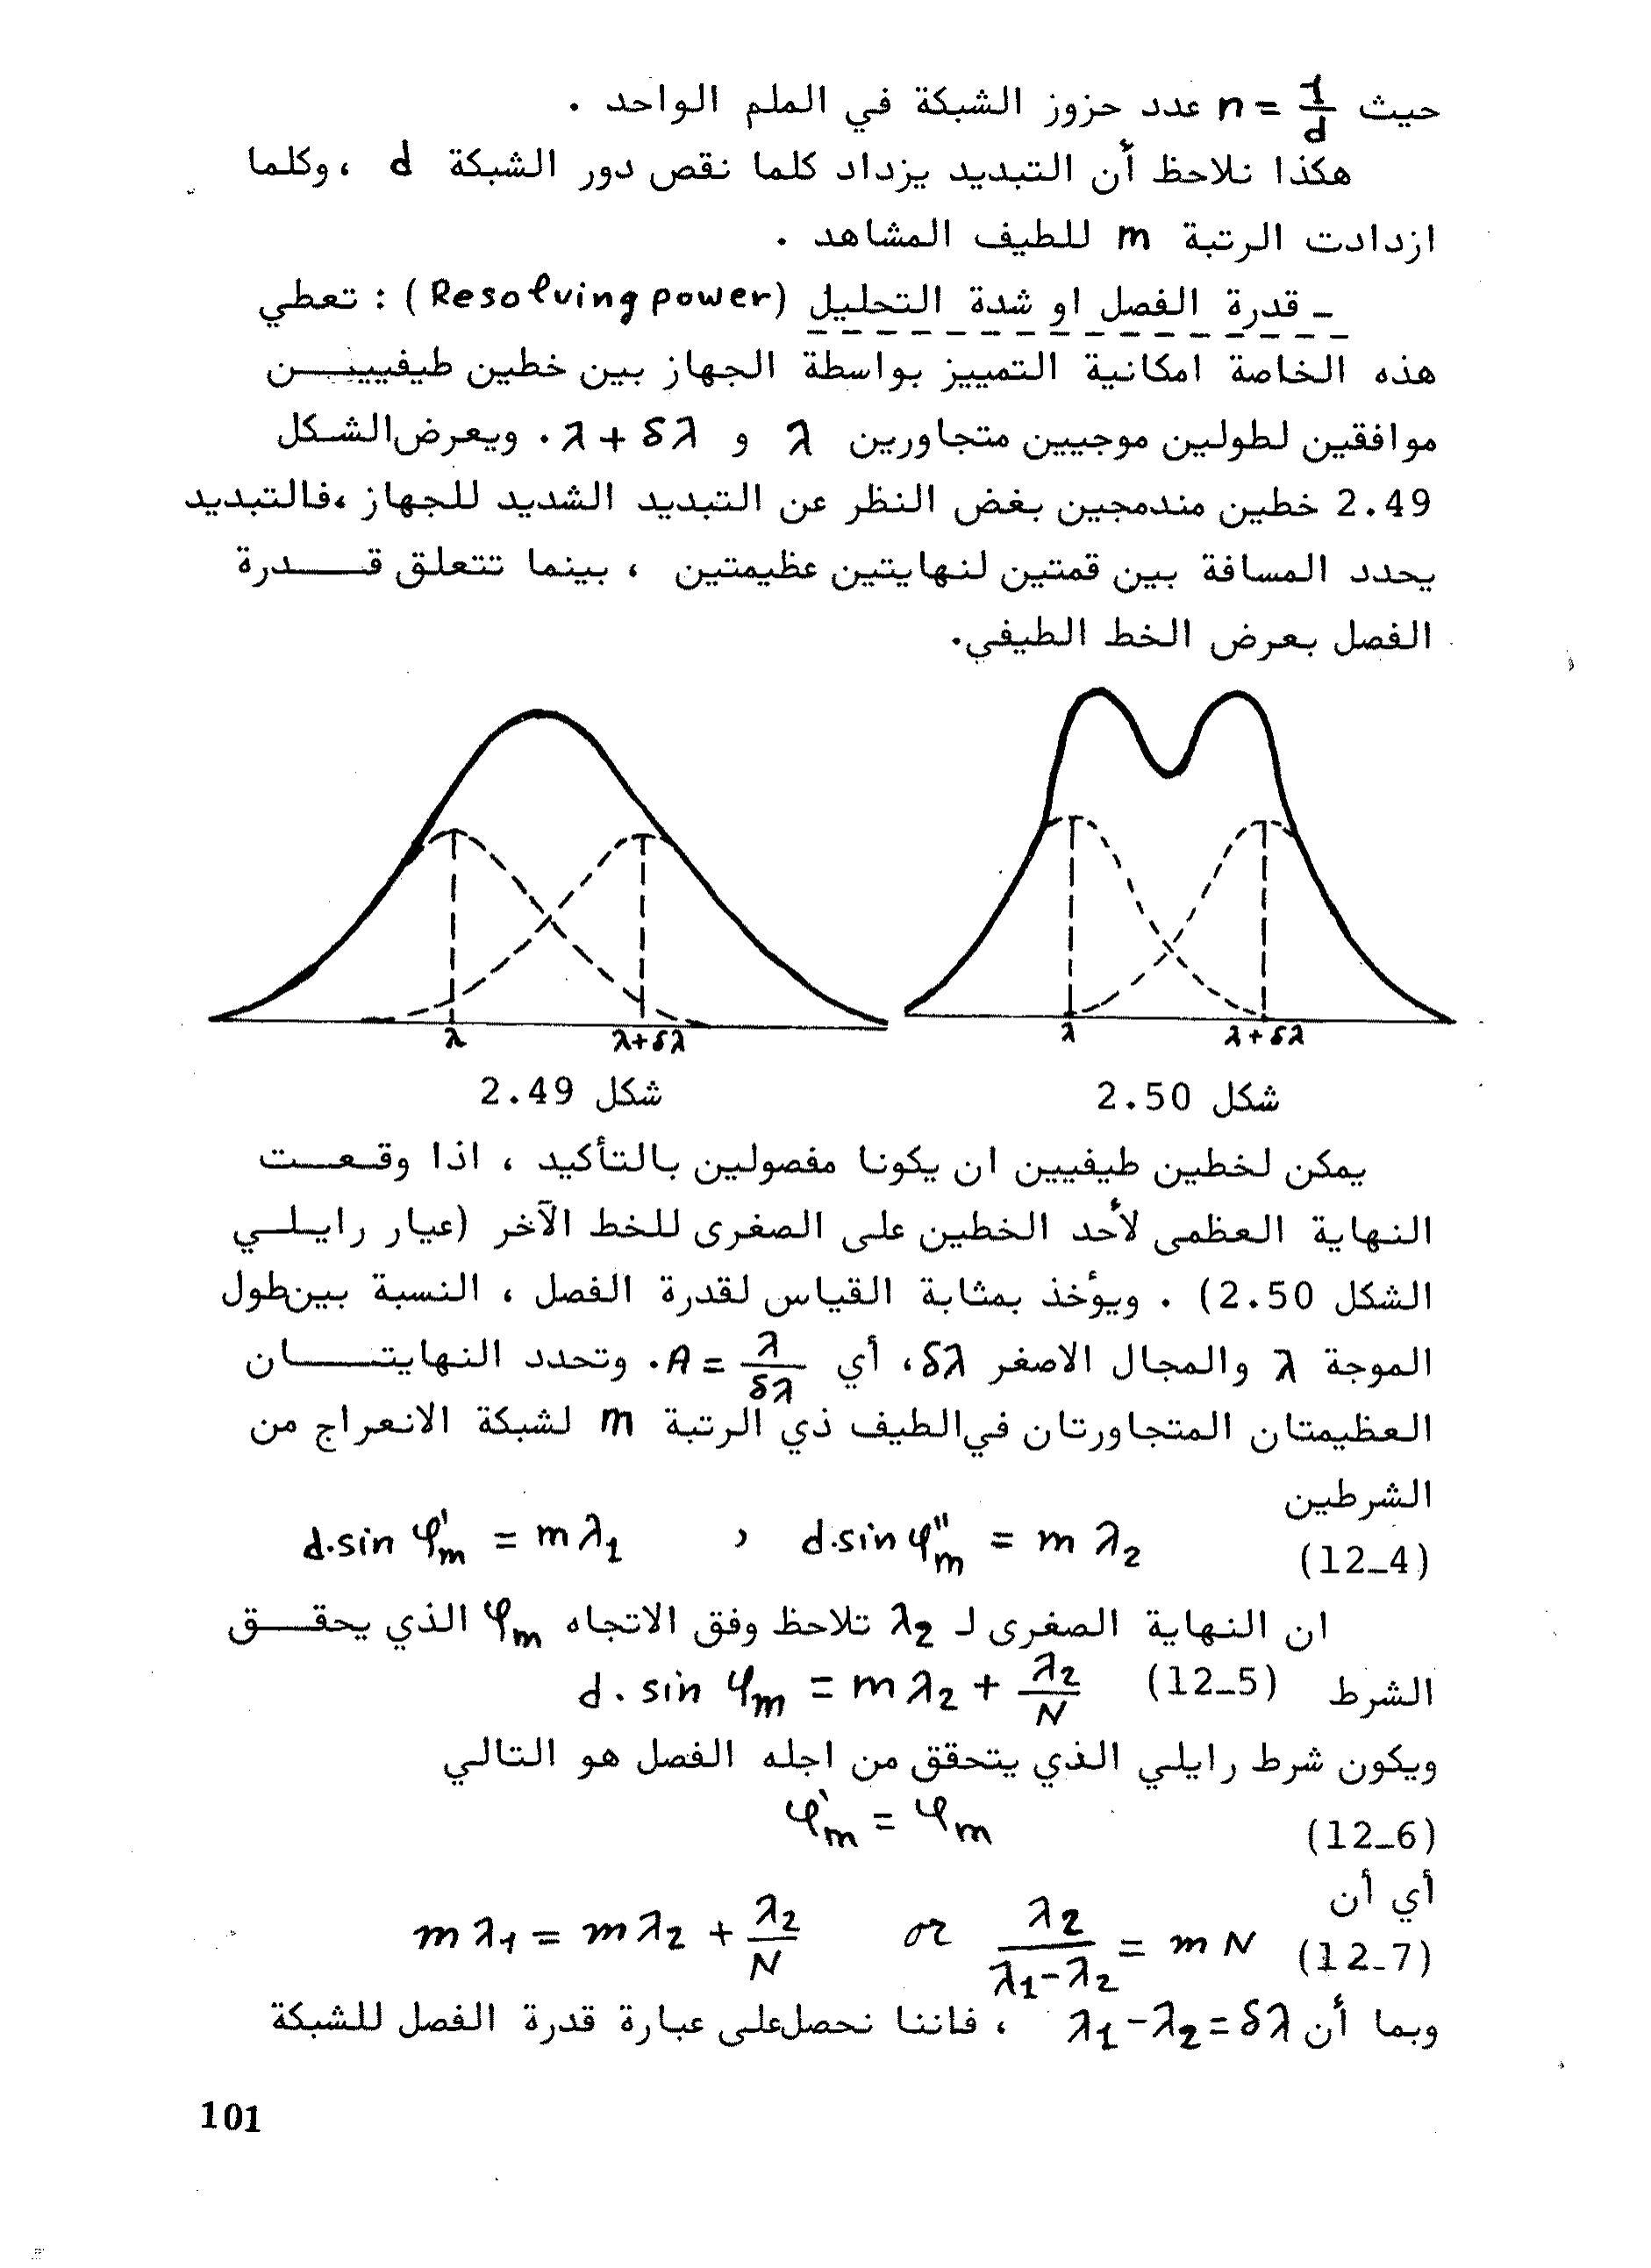 حيث n = 1/d عدد حزوز الشبكة في الملم الواحد .
هكذا نلاحظ أن التبديد يزداد كلما نقص دور الشبكة d ، وكلما
ازدادت الرتبة m للطيف المشاهد .
- قدرة الفصل او شدة التحليل (Resolving power) : تعطي
هذه الخاصة امكانية التمييز بواسطة الجهاز بين خطين طيفيين
موافقين لطولين موجيين متجاورين λ و λ + δλ . ويعرض الشكل
2.49 خطين مندمجين بغض النظر عن التبديد الشديد للجهاز ، فالتبديد
يحدد المسافة بين قمتين لنهايتين عظيمتين ، بينما تتعلق قدرة
الفصل بعرض الخط الطيفي.
λ λ+δλ
λ λ+δλ
شكل 2.50
شكل 2.49
يمكن لخطين طيفيين ان يكونا مفصولين بالتأكيد ، اذا وقعت
النهاية العظمى لأحد الخطين على الصغرى للخط الآخر (عيار رايلي
الشكل 2.50) . ويؤخذ بمثابة القياس لقدرة الفصل ، النسبة بين طول
الموجة λ والمجال الاصغر δλ ، أي A = λ/δλ . وتحدد النهايتان
العظيمتان المتجاورتان في الطيف ذي الرتبة m لشبكة الانعراج من
الشرطين
d.sin φ'm = mλ1 , d.sin φ"m = mλ2 (12-4)
ان النهاية الصغرى لـ λ2 تلاحظ وفق الاتجاه φm الذي يحقق
الشرط (12-5) d . sin φm = mλ2 + λ2/N
ويكون شرط رايلي الذي يتحقق من اجله الفصل هو التالي
φ'm = φm (12-6)
أي أن
mλ1 = mλ2 + λ2/N or λ2/(λ1-λ2) = mN (12-7)
وبما أن λ1-λ2 = δλ ، فاننا نحصل على عبارة قدرة الفصل للشبكة
101